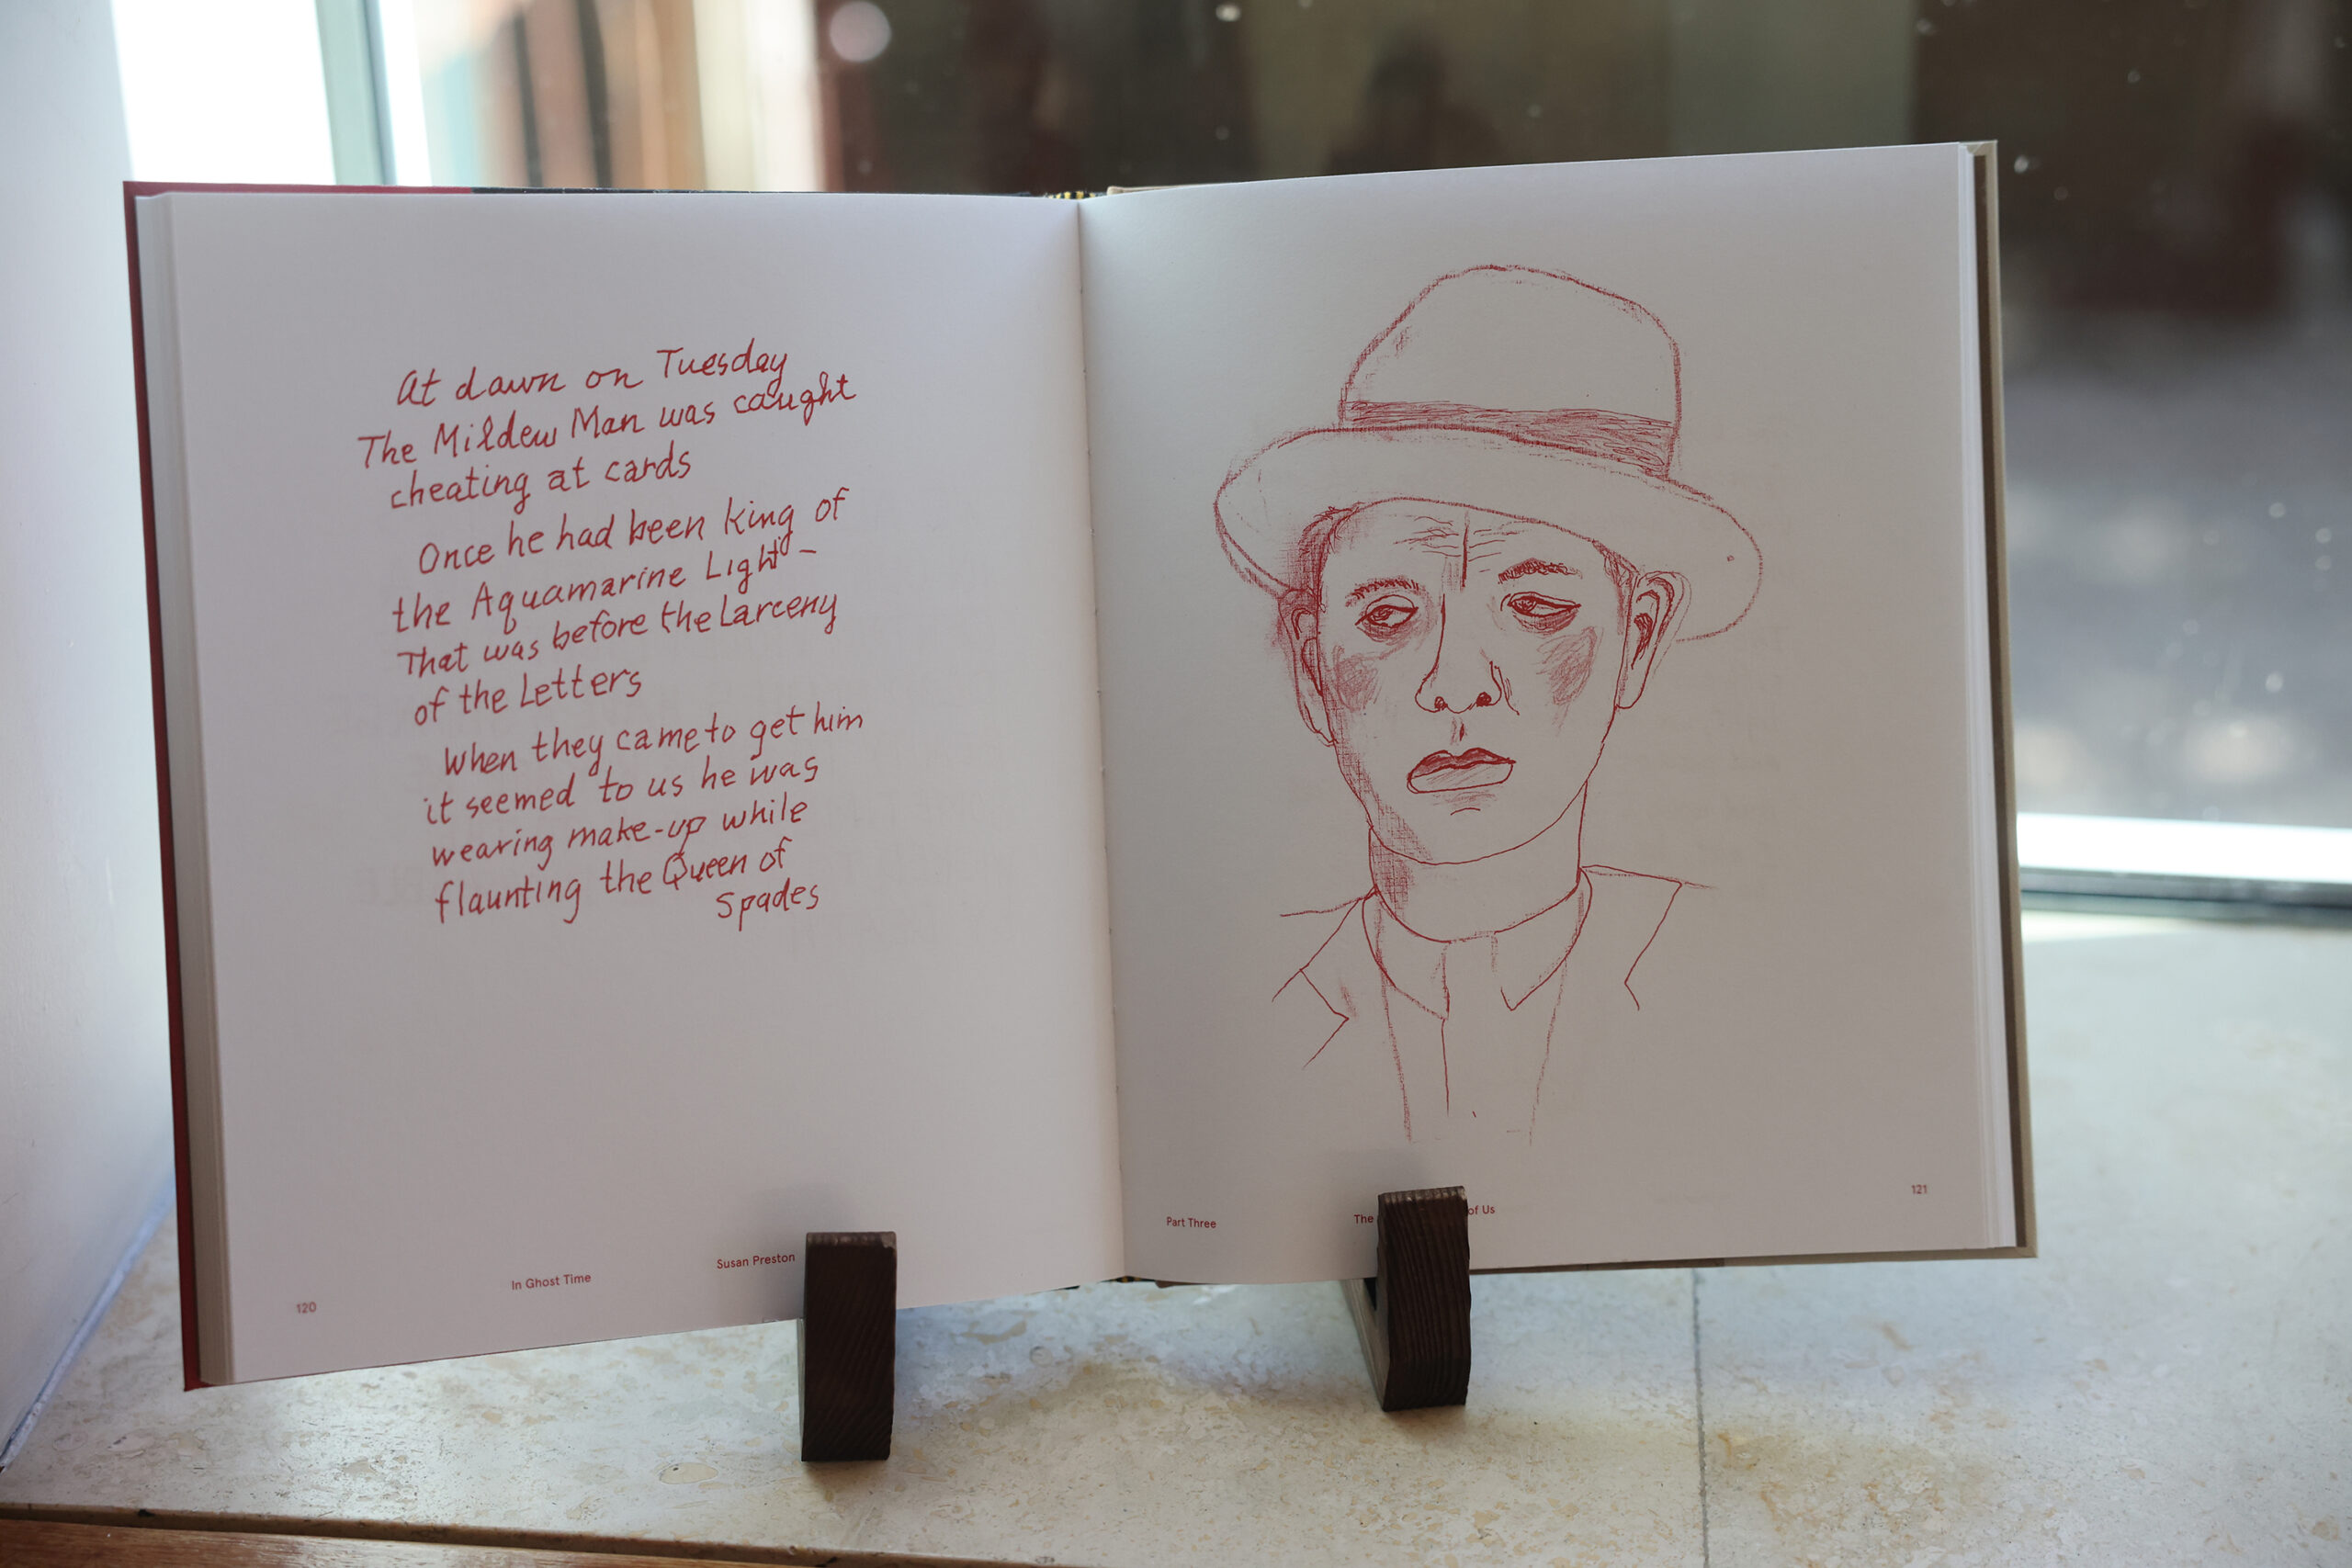 At dawn on Tuesday
The Mildew Man was caught
cheating at cards
Once he had been king of
the Aquamarine Light –
That was before the Larceny
of the Letters
When they came to get him
it seemed to us he was
wearing make-up while
flaunting the Queen of
Spades
120
In Ghost Time
Susan Preston
Part Three
The of Us
121